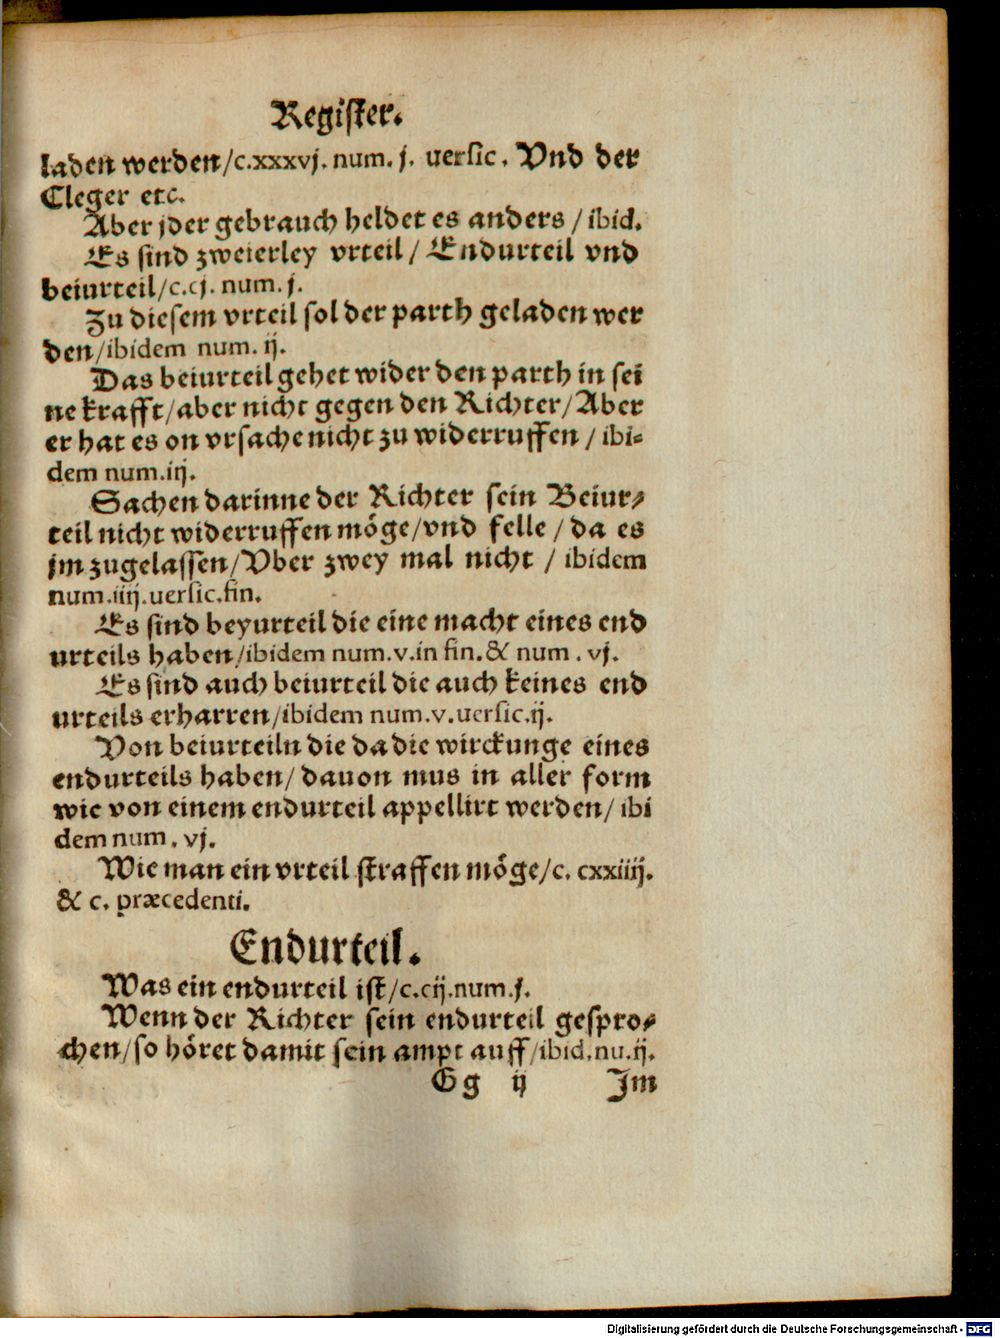 Register.
laden werden/c.xxxvj. num. j. uersic. Vnd der
Cleger etc.
Aber jder gebrauch heldet es anders / ibid.
Es sind zweierley vrteil / Endurteil vnd
beiurteil/c.cj. num. j.
Zu diesem vrteil sol der parth geladen wer
den/ibidem num. ij.
Das beiurteil gehet wider den parth in sei
ne krafft/aber nicht gegen den Richter/Aber
er hat es on vrsache nicht zu widerruffen / ibi-
dem num.iij.
Sachen darinne der Richter sein Beiur-
teil nicht widerruffen möge/vnd felle / da es
jm zugelassen/Vber zwey mal nicht / ibidem
num.iiij.uersic.fin.
Es sind beyurteil die eine macht eines end
urteils haben/ibidem num.v.in fin.& num . vj.
Es sind auch beiurteil die auch keines end
urteils erharren/ibidem num.v.uersic.ij.
Von beiurteiln die da die wirckunge eines
endurteils haben/ dauon mus in aller form
wie von einem endurteil appellirt werden/ ibi
dem num . vj.
Wie man ein vrteil straffen möge/c. cxxiiij.
& c. præcedenti.
Endurteil.
Was ein endurteil ist/c.cij.num.j.
Wenn der Richter sein endurteil gespro-
chen/so höret damit sein ampt auff/ibid.nu.ij.
Gg ij Jm
Digitalisierung gefördert durch die Deutsche Forschungsgemeinschaft - DFG